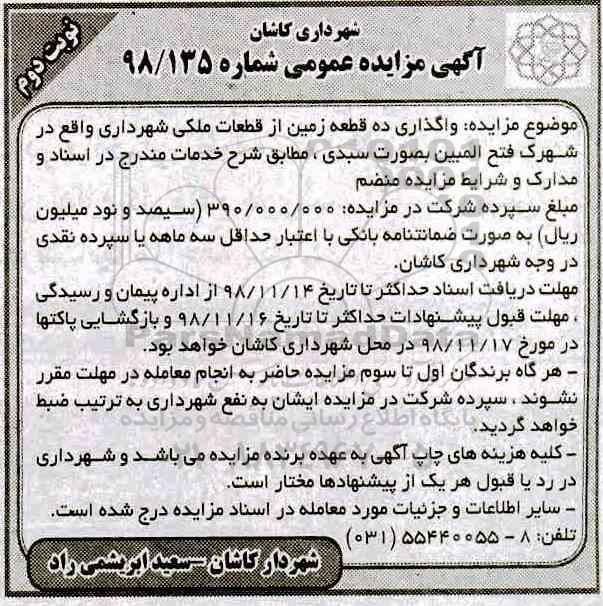 شهرداری کاشان
آگهی مزایده عمومی شماره ۹۸/۱۳۵
نوبت دوم
موضوع مزایده: واگذاری ده قطعه زمین از قطعات ملکی شهرداری واقع در
شهرک فتح المبین بصورت سبدی ، مطابق شرح خدمات مندرج در اسناد و
مدارک و شرایط مزایده منضم
مبلغ سپرده شرکت در مزایده: ۳۹۰/۰۰۰/۰۰۰ (سیصد و نود میلیون
ریال) به صورت ضمانتنامه بانکی با اعتبار حداقل سه ماهه یا سپرده نقدی
در وجه شهرداری کاشان.
مهلت دریافت اسناد حداکثر تا تاریخ ۹۸/۱۱/۱۴ از اداره پیمان و رسیدگی
، مهلت قبول پیشنهادات حداکثر تا تاریخ ۹۸/۱۱/۱۶ و بازگشایی پاکتها
در مورخ ۹۸/۱۱/۱۷ در محل شهرداری کاشان خواهد بود.
- هر گاه برندگان اول تا سوم مزایده حاضر به انجام معامله در مهلت مقرر
نشوند ، سپرده شرکت در مزایده ایشان به نفع شهرداری به ترتیب ضبط
خواهد گردید.
- کلیه هزینه های چاپ آگهی به عهده برنده مزایده می باشد و شهرداری
در رد یا قبول هر یک از پیشنهادها مختار است.
- سایر اطلاعات و جزئیات مورد معامله در اسناد مزایده درج شده است.
تلفن: ۸ - ۵۵۴۴۰۰۵۵ (۰۳۱)
شهردار کاشان –سعید ابریشمی راد